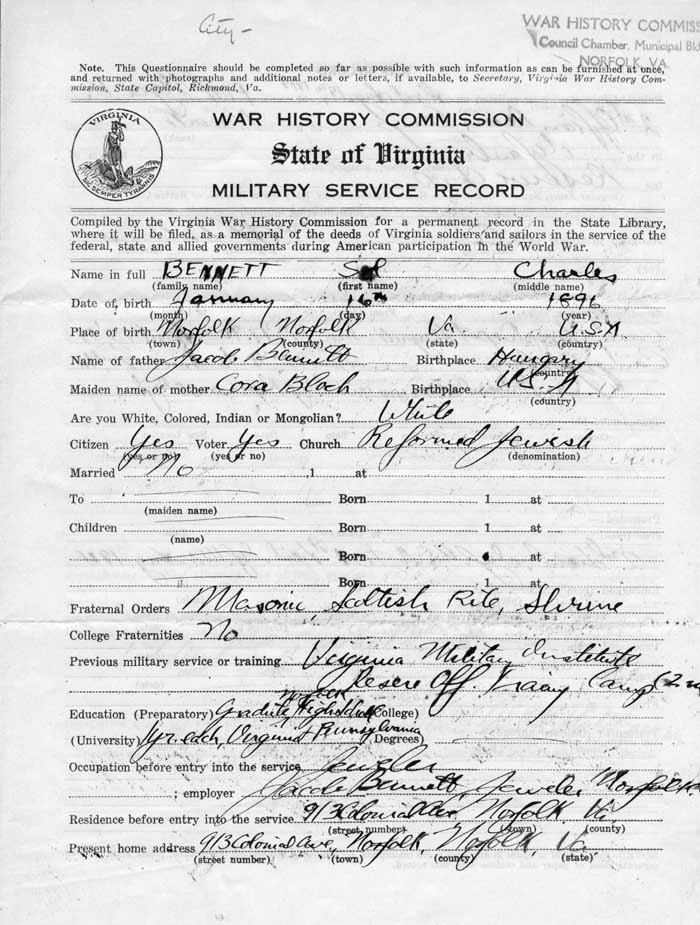 City-
WAR HISTORY COMMISS
Council Chamber, Municipal Bld
NORFOLK, VA.
Note. This Questionnaire should be completed so far as possible with such information as can be furnished at once,
and returned with photographs and additional notes or letters, if available, to Secretary, Virginia War History Com-
mission, State Capitol, Richmond, Va.
VIRGINIA
SIC SEMPER TYRANNIS
WAR HISTORY COMMISSION
State of Virginia
MILITARY SERVICE RECORD
Compiled by the Virginia War History Commission for a permanent record in the State Library,
where it will be filed, as a memorial of the deeds of Virginia soldiers and sailors in the service of the
federal, state and allied governments during American participation in the World War.
Name in full BENNETT Sol Charles
(family name) (first name) (middle name)
Date of birth January 16th 1896
(month) (day) (year)
Place of birth Norfolk Norfolk Va. U.S.A
(town) (county) (state) (country)
Name of father Jacob Bennett Birthplace Hungary
(country)
Maiden name of mother Cora Bloch Birthplace U.S.A
(country)
Are you White, Colored, Indian or Mongolian? White
Citizen Yes Voter Yes Church Reformed Jewish
(yes or no) (yes or no) (denomination)
Married No , 1 at
To Born 1 at
(maiden name)
Children Born 1 at
(name)
Born at
Born 1 at
Fraternal Orders Masonic, Scottish Rite, Shrine
College Fraternities No
Previous military service or training Virginia Military Institute
Reserve Off. Training Camp (2nd
Norfolk
Education (Preparatory) Graduate High School (College)
(University) 1yr. each, Virginia Pennsylvania Degrees)
Occupation before entry into the service Jeweler
; employer Jacob Bennett, Jeweler Norfolk
Residence before entry into the service 913 Colonial Ave, Norfolk, Va.
(street, number) (town) (county)
Present home address 913 Colonial Ave, Norfolk, Norfolk, Va
(street number) (town) (county) (state)